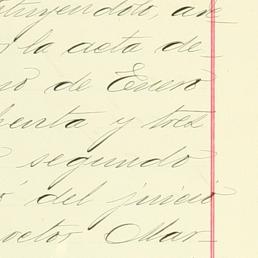 tuyendolo, ase
la acta de-
de Enero
henta y tres
segundo
del juicio
Mar-